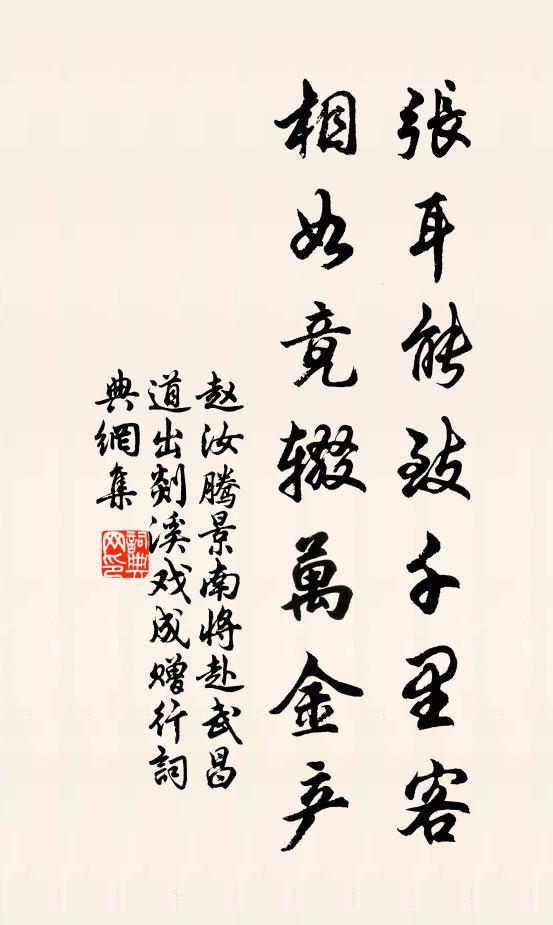 張耳能致千里客
相如竟辍萬金产
赵汝腾景南将赴武昌
道出剡溪戏成赠行詞
典網集
詞典网印